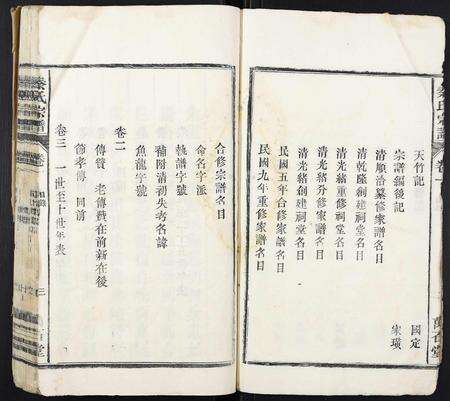 天竹記 國定
宗譜編後記 家璜
清順治纂修家譜名目
清乾隆創建祠堂名目
清光緒重修祠堂名目
清光緒升修家譜名目
清光緒創建祠堂名目
民國五年合修家譜名目
民國九年重修家譜名目
合修宗譜名目
命名字派
執譜字號
補附清初失考名諱
魚龍字號
卷二
傳贊 老傳贊在前新在後
節孝傳 同前
卷三 一世至十世年表
秦氏宗譜
卷一